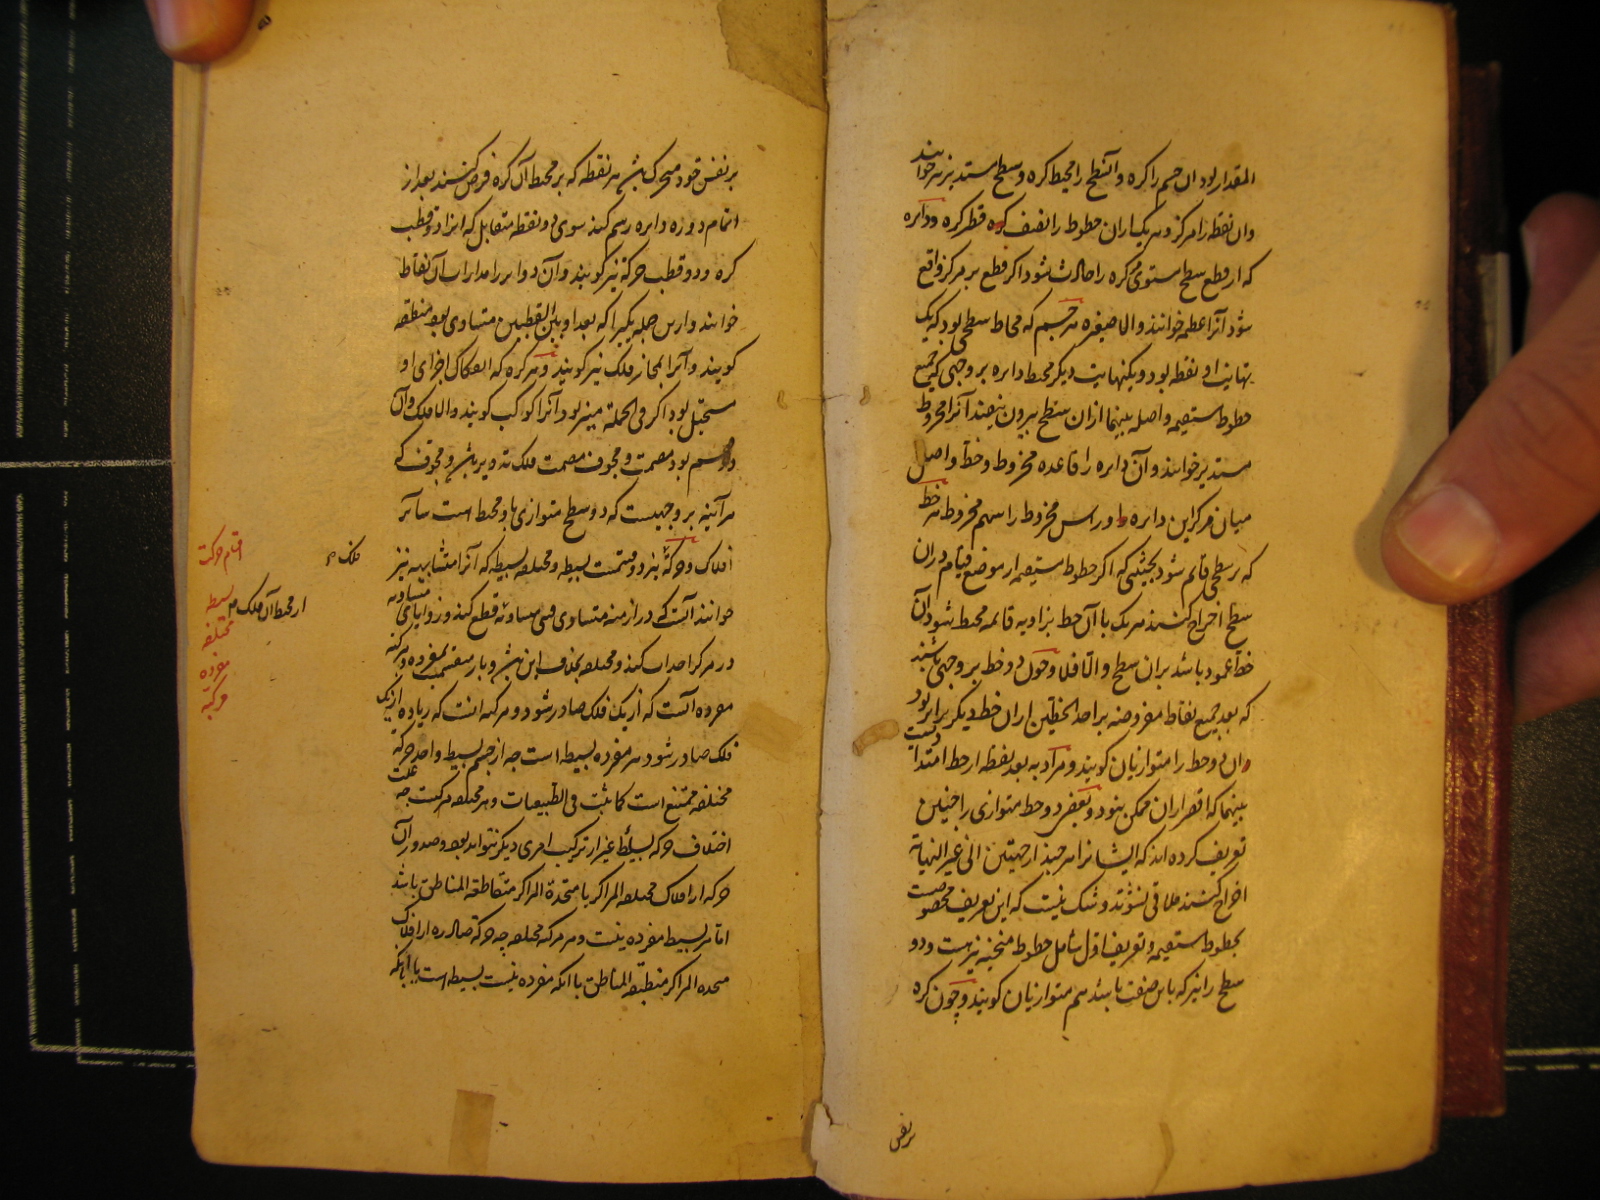 المقدار بود آن جسم را کره و آن سطح را محیط کره و سطح مستدیر نیز خوانند
وان نقطه را مرکز و هر یک از ان خطوط را نصف قطر کره و دایره
که از قطع سطح مستوی کره را حادث شود اگر قطع بر مرکز واقع
شود آنرا عظیمه خوانند والا صغیره هر جسم که محاط سطحی بود که یک
نهایت او نقطه بود و یک نهایت دیگر محیط دایره بر وجهی که جمیع
خطوط مستقیمه واصله بینهما ازان سطح بیرون نیفتد آنرا مخروط
مستدیر خوانند و آن دایره را قاعده مخروط و خط واصل
میان مرکز این دایره و راس مخروط را سهم مخروط هر خط
که بر سطحی قائم شود بحیثیتی که اگر خطوط مستقیمه از موضع قیام در ان
سطح اخراج کنند هر یک با آن خط بزاویه قائمه محیط شود آن
خط عمود باشد بران سطح والا فلا و چون دو خط بر وجهی باشند
که بعد جمیع نقاط مفروضه بر احد الخطین از ان خط دیگر برابر بود
آن دو خط را متوازیان گویند و مراد به بعد نقطه از خط امتدادیست
بینهما که اقصر ازان ممکن نبود و بعضی دو خط متوازی را چنین
تعریف کرده اند که ایشانرا هر چند از جهتین الی غیر النهایة
اخراج کنند ملاقی نشوند و شک نیست که این تعریف مخصوصست
بخطوط مستقیمه و تعریف اول شامل خطوط منحنیه نیز هست و دو
سطح را نیز که باین صفت باشند هم متوازیان گویند و چون کره
بر نفس
بر نفس خود متحرک باشد هر نقطه که بر محیط آن کره فرض کنند بعد از
اتمام دوره دایره رسم کند سوی دو نقطه متقابل که آنرا دو قطب
کره و دو قطب حرکة نیز گویند و آن دوایر را مدارات آن نقاط
خوانند و ازین جمله یکیرا که بعد او بین القطبین متساوی بود منطقه
گویند و آنرا بمجاز فلک نیز گویند و هر کره که انفکاک اجزای او
مستحیل بود اگر فی الجملة منیر بود آنرا کوکب گویند والا فلک و آن
دو قسم بود مصمت و مجوف مصمت فلک تدویر باشد و مجوف که
هر آینه بر وجهیست که دو سطح متوازی باو محیط است سائر
افلاک و حرکة نیز دو قسمت بسیطه و مختلفه بسیطه که آنرا متشابهه نیز
خوانند آنست که در ازمنه متساوی قسی متساویه قطع کند و زوایای متساویه
در مرکز احداث کند و مختلفه بخلاف این باشد و باز منقسمست بمفرده و مرکبه
مفرده آنست که از یک فلک صادر شود و مرکبه آنست که زیاده از یک
فلک صادر شود هر مفرده بسیطه است چه از جسم بسیط واحد حرکة
مختلفه ممتنع است کما یثبت فی الطبیعیات و هر مختلفه مرکبست چه علت
اختلاف حرکه بسائط غیر از ترکیب امری دیگر نتواند بود و صدور آن
حرکه از افلاک مختلفه المراکز یا متحدة المراکز متقاطعه المناطق باشد
اما هر بسیط مفرده نیست و هر مرکبه مختلفه چه حرکة صادره از افلاک
متحده المراکز منطبقه المناطق با آنکه مفرده نیست بسیطه است با آنکه
اقسام حرکت
بسیطه
مختلفه
مفرده
مرکبه
فلک
از محیط آن فلک